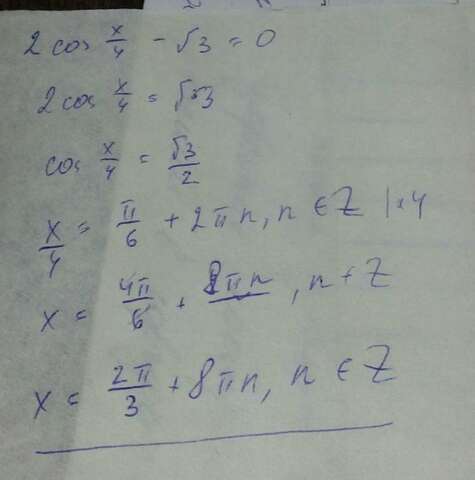 2 cos x/4 - √3 = 0
2 cos x/4 = √3
cos x/4 = √3/2
x/4 = π/6 + 2πn, n ∈ Z |×4
x = 4π/6 + 8πn, n ∈ Z
x = 2π/3 + 8πn, n ∈ Z